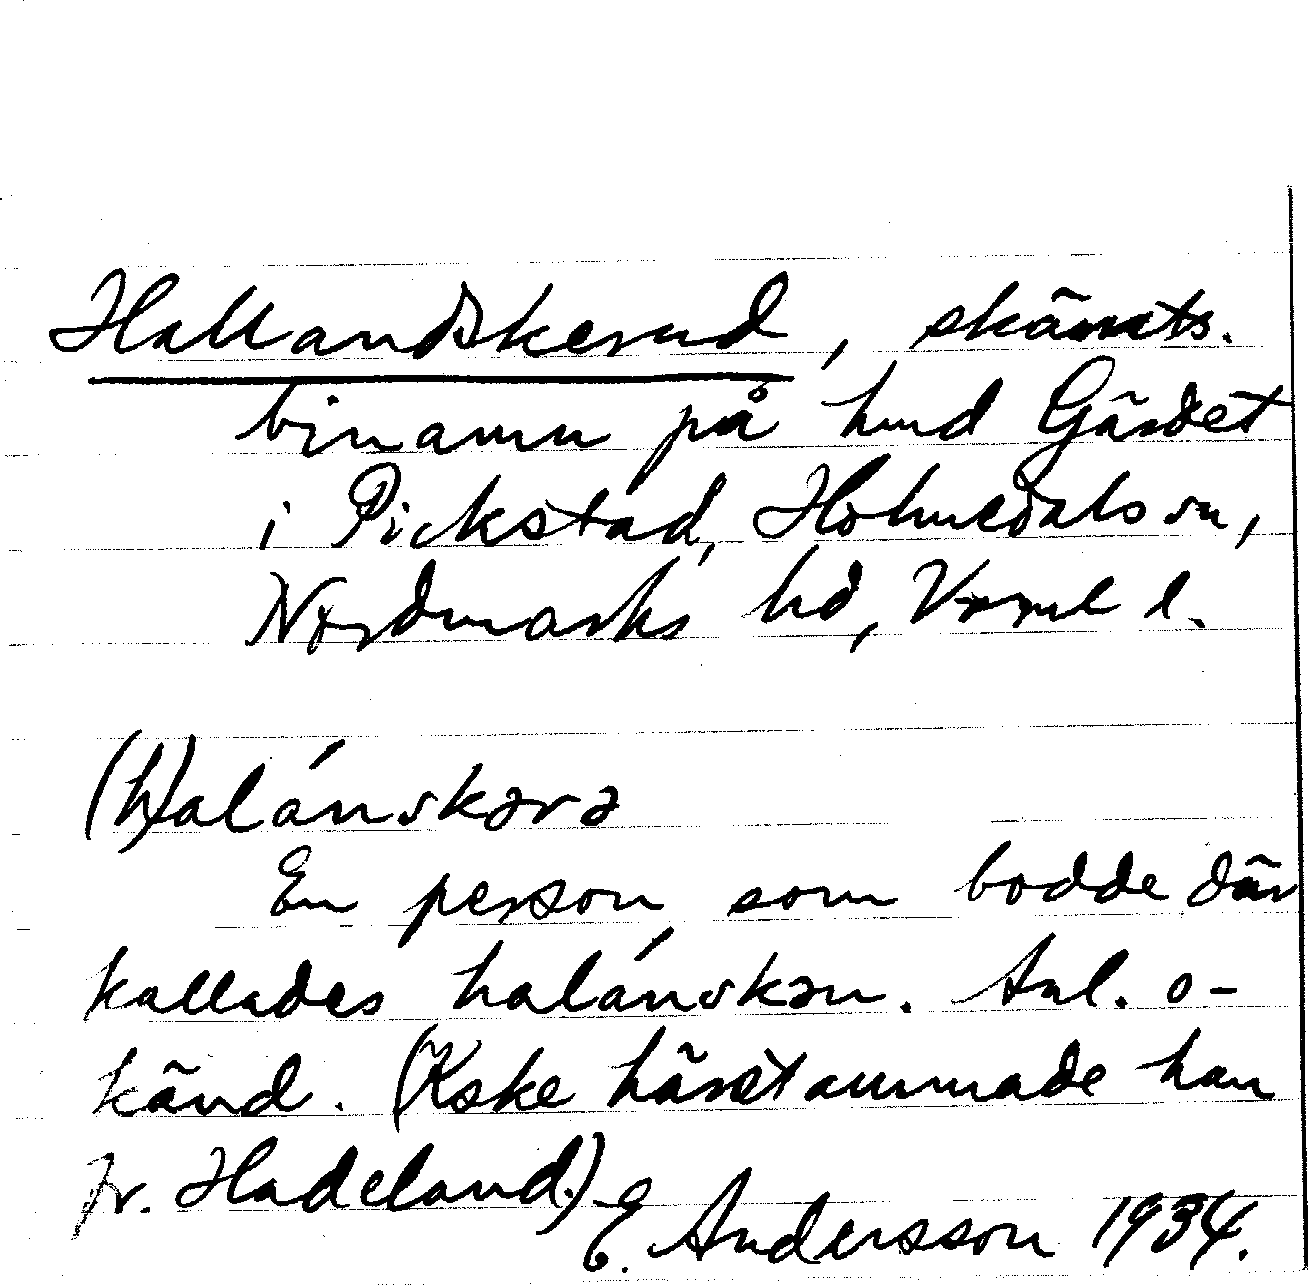 Hallandskerud, skämts.
binamn på hmd Gärdet
i Pickstad, Holmedals sn,
Nordmarks hd, Värml l.
(h)alánskərə
En person som bodde där
kallades halánskən. Anl. o-
känd. (Kske härstammade han
fr. Hadeland.)
E. Andersson 1934.